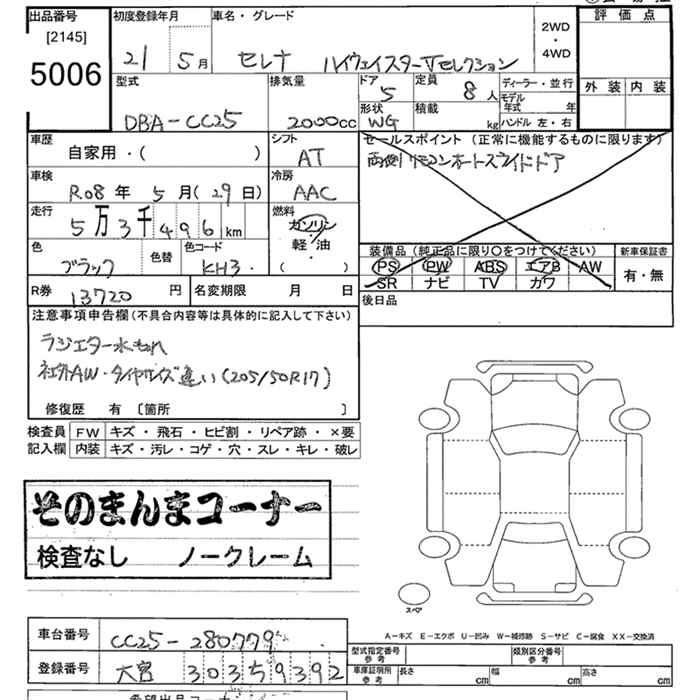 出品番号 初度登録年月 車名・グレード 評価点
[2145]
5006
21 5月 セレナ ハイウェイスターVセレクション
2WD
・
4WD
外装 内装
型式 排気量 ドア 定員 ディーラー・並行
DBA-CC25 2000cc 5 8人 モデル年式 年
形状 積載 ハンドル 左・右
WG kg
車歴 シフト セールスポイント (正常に機能するものに限ります)
自家用・( ) AT 両側リモコンオートスライドドア
車検 冷房
R08年 5月(29日) AAC
走行 燃料
5万3千496km ガソリン
軽・油
( )
色 色替 色コード 装備品(純正品に限り○をつけてください) 新車保証書
ブラック KH3 PS PW ABS エアB AW 有・無
SR ナビ TV カワ
R券 13720円 名変期限 月 日 後日品
注意事項申告欄(不具合内容等は具体的に記入して下さい)
ラジエター水もれ
社外AW・タイヤサイズ違い(205/50R17)
修復歴 有 〔箇所 〕
検査員 FW キズ・飛石・ヒビ割・リペア跡・×要
記入欄 内装 キズ・汚レ・コゲ・穴・スレ・キレ・破レ
そのまんまコーナー
検査なし ノークレーム
スペア
A-キズ E-エクボ U-凹み W-補修跡 S-サビ C-腐食 XX-交換済
車台番号 CC25-280779 型式指定番号 参考 類別区分番号 参考
登録番号 大宮 303 59392 車庫証明所 参考 長さ cm 幅 cm 高さ cm